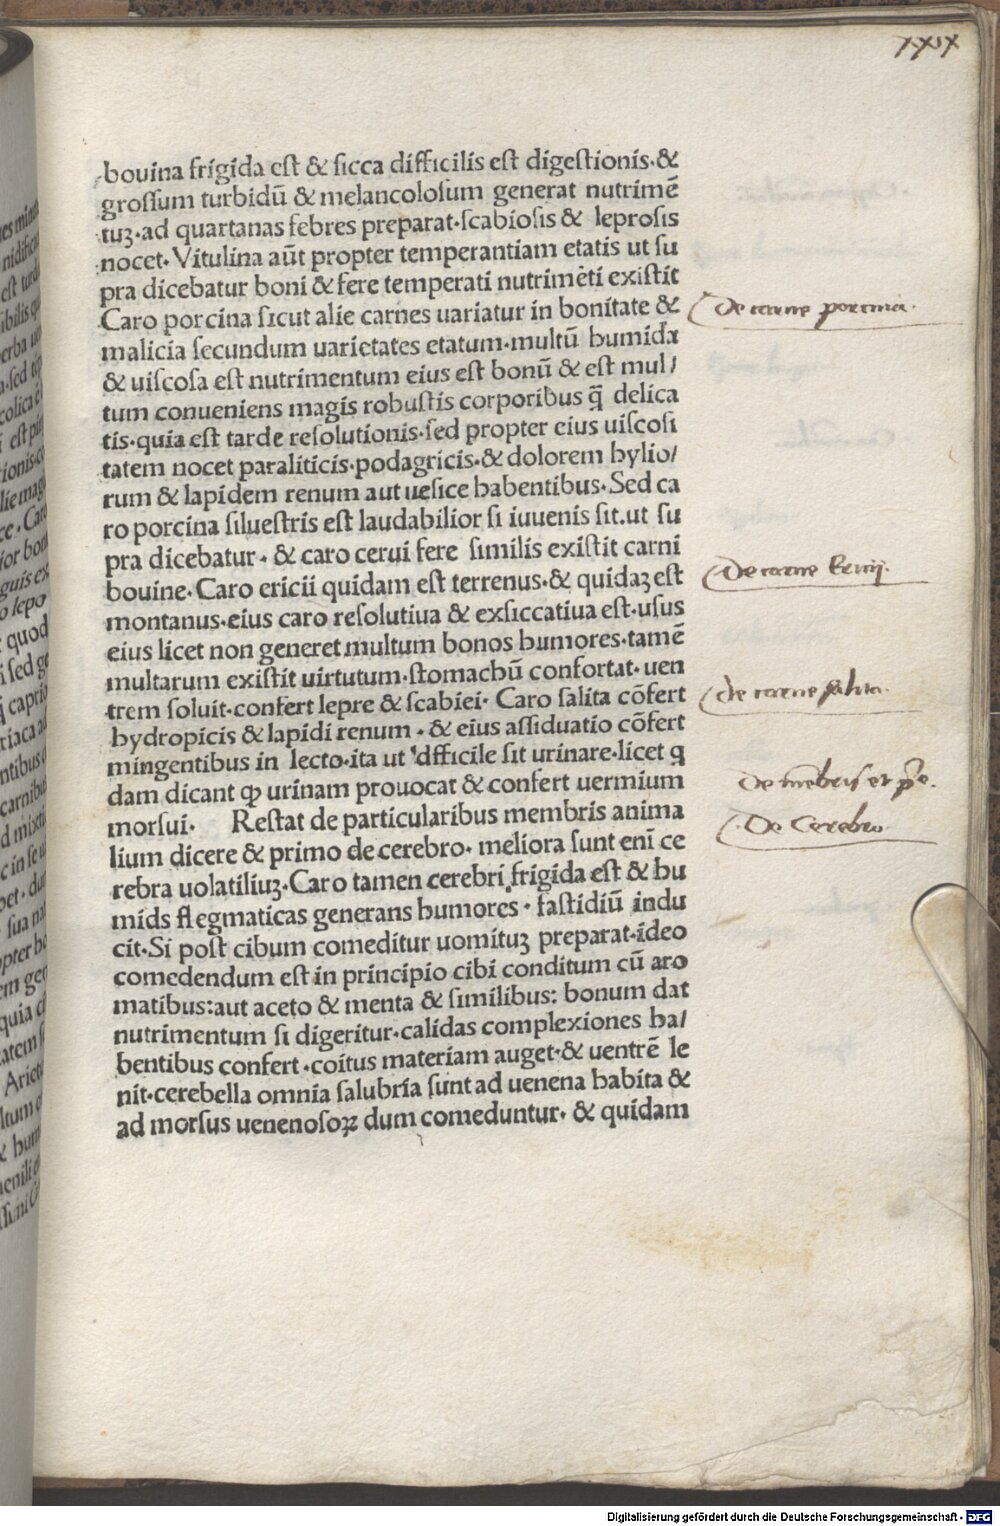 bouina frigida est & sicca difficilis est digestionis·&
grossum turbidū & melancolosum generat nutrimē
tuꝫ·ad quartanas febres preparat·scabiosis & leprosis
nocet· Vitulina aūt propter temperantiam etatis ut su
pra dicebatur boni & fere temperati nutrimēti existit
Caro porcina sicut alie carnes uariatur in bonitate &
De carne porcina·
malicia secundum uarietates etatum·multū humida
& uiscosa est nutrimentum eius est bonū & est mul/
tum conueniens magis robustis corporibus q̄ delica
tis·quia est tarde resolutionis·sed propter eius uiscosi
tatem nocet paraliticis·podagricis·& dolorem hylio/
rum & lapidem renum aut uesice habentibus·Sed ca
ro porcina siluestris est laudabilior si iuuenis sit·ut su
pra dicebatur· & caro cerui fere similis existit carni
bouine·Caro ericii quidam est terrenus·& quidaꝫ est
De carne
montanus·eius caro resolutiua & exsiccatiua est·usus
eius licet non generet multum bonos humores·tamē
multarum existit uirtutum·stomachū confortat·uen
trem soluit·confert lepre & scabiei· Caro salita cōfert
de carne salita·
hydropicis & lapidi renum · & eius assiduatio cōfert
mingentibus in lecto·ita ut dfficile sit urinare·licet q
dam dicant ꝙ urinam prouocat & confert uermium
De mēbris et p̄e·
morsui· Restat de particularibus membris anima
De Cerebro
lium dicere & primo de cerebro· meliora sunt enī ce
rebra uolatiliuꝫ·Caro tamen cerebri frigida est & hu
mids flegmaticas generans humores · fastidiū indu
cit·Si post cibum comeditur uomituꝫ preparat·ideo
comedendum est in principio cibi conditum cū aro
matibus:aut aceto & menta & similibus: bonum dat
nutrimentum si digeritur·calidas complexiones ha/
bentibus confert·coitus materiam auget·& uentrē le
nit·cerebella omnia salubria sunt ad uenena habita &
ad morsus uenenosoꝝ dum comeduntur· & quidam
Digitalisierung gefördert durch die Deutsche Forschungsgemeinschaft - DFG